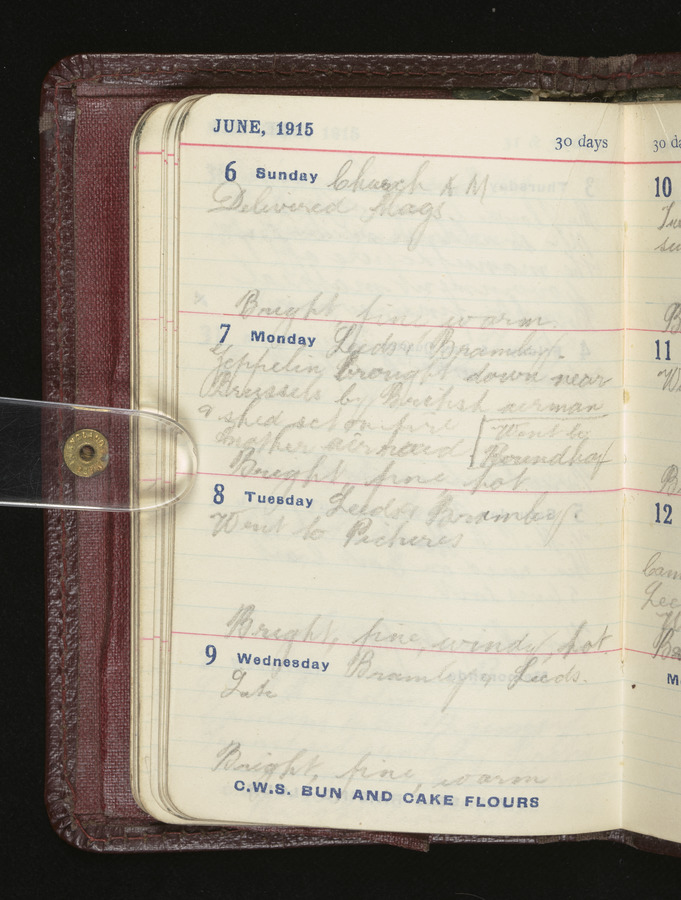 JUNE, 1915
30 days
6 Sunday Church A M
Delivered Mags
Bright, fine, warm.
7 Monday Leeds, Bramley.
Zeppelin brought down near
Brussels by British airman
& shed set on fire
another airmaid [Went to
Roundhay
Bright, fine hot
8 Tuesday Leeds, Bramley.
Went to Pictures
Bright, fine, windy, hot.
9 Wednesday Bramley, Leeds.
Late
Bright, fine, warm
C.W.S. BUN AND CAKE FLOURS
30 da
10
11
12
M